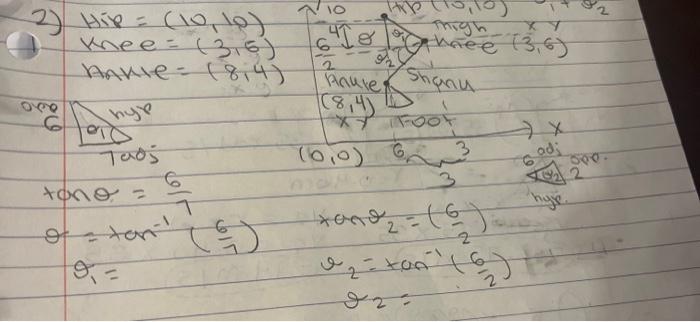 2) Hip = (10,10)
Knee = (3,6)
Ankle = (8,4)
opp
6
hyp
θ1
7 adj
tanθ = 6/7
θ = tan⁻¹ (6/7)
θ1 =
10
Hip (10,10)
θ2
4
6
2
θ
Thigh
x y
Knee (3,6)
θ1
θ2
Ankle
Shank
(8,4)
x y
Foot
x
(0,0)
6 3
3
6 adj
opp.
2
θ2
hyp.
tanθ2 = (6/2)
θ2 = tan⁻¹ (6/2)
θ2 =